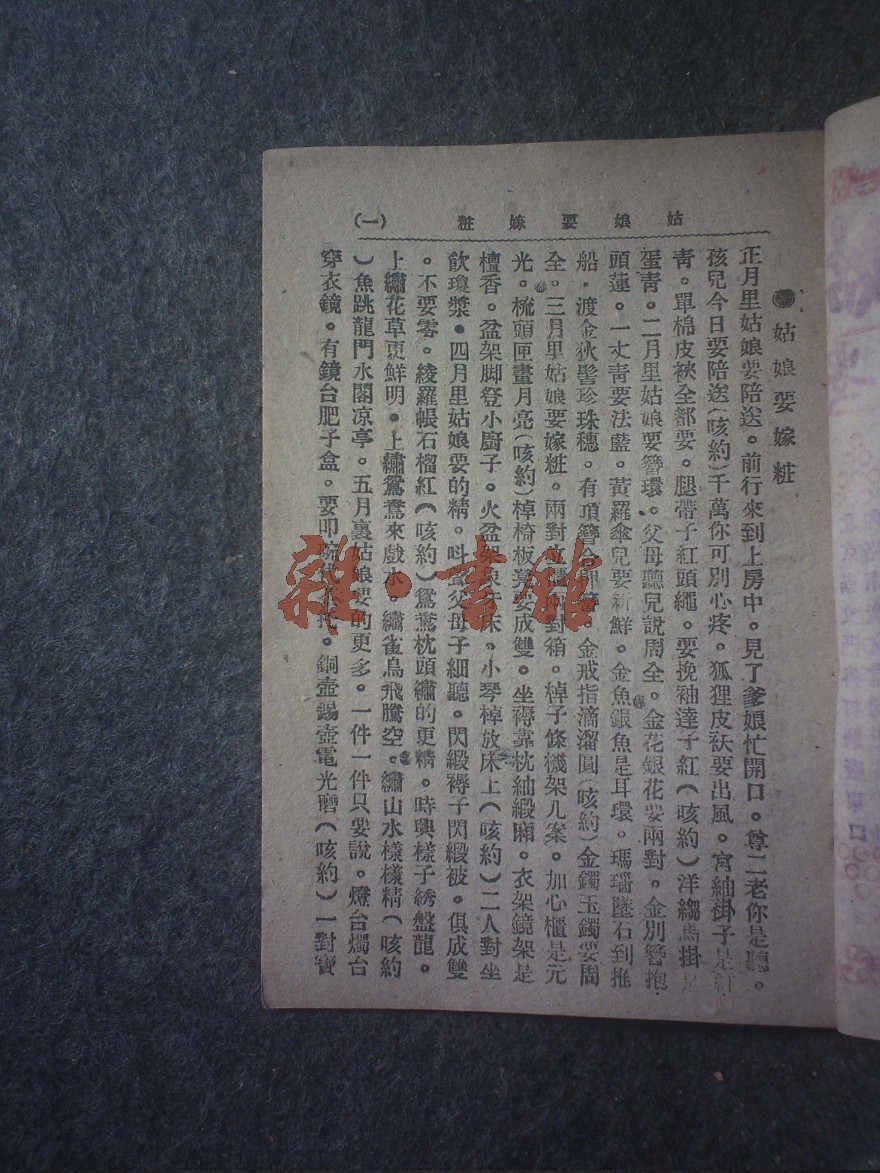 姑娘要嫁粧 (一)
●姑娘要嫁粧
正月里姑娘要陪送。前行來到上房中。見了爹娘忙開口。尊二老你是聽。
孩兒今日要陪送(咳約)千萬你可別心疼。狐狸皮袄要出風。宮紬掛子是紅
青。單棉皮裌全都要。腿帶子紅頭繩。要挽袖達子紅(咳約)洋縐馬掛是
蛋靑。二月里姑娘要簪環。父母聽兒說周全。金花銀花要兩對。金別簪抱
頭蓮。一丈靑要法藍。黃羅傘兒要新鮮。金魚銀魚是耳環。瑪瑙墜石到推
船。渡金狄髻珍珠穗。有頂簪合押簪。金戒指滴溜圓(咳約)金鐲玉鐲要周
全。三月里姑娘要嫁粧。兩對立櫃兩對箱。棹子條機架几案。加心櫃是元
光。梳頭匣畫月亮(咳約)棹椅板凳要成雙。坐褥靠枕紬緞廂。衣架鏡架是
檀香。盆架脚登小廚子。火盆架象牙床。小琴棹放床上(咳約)二人對坐
飲瓊漿。四月里姑娘要的精。呌聲父母子細聽。閃緞褥子閃緞被。俱成雙
。不要零。綾羅帳石榴紅(咳約)鴛鴦枕頭繡的更精。時興樣子綉盤龍。
上繡花草更鮮明。上繡鴛鴦來戲水。繡雀鳥飛騰空。繡山水樣樣精(咳約
)魚跳龍門水閣凉亭。五月裏姑娘要的更多。一件一件只要說。燈台燭台
穿衣鏡。有鏡台肥子盒。要叩碗。銅壺錫壺電光磨(咳約)一對寶
雜·書館